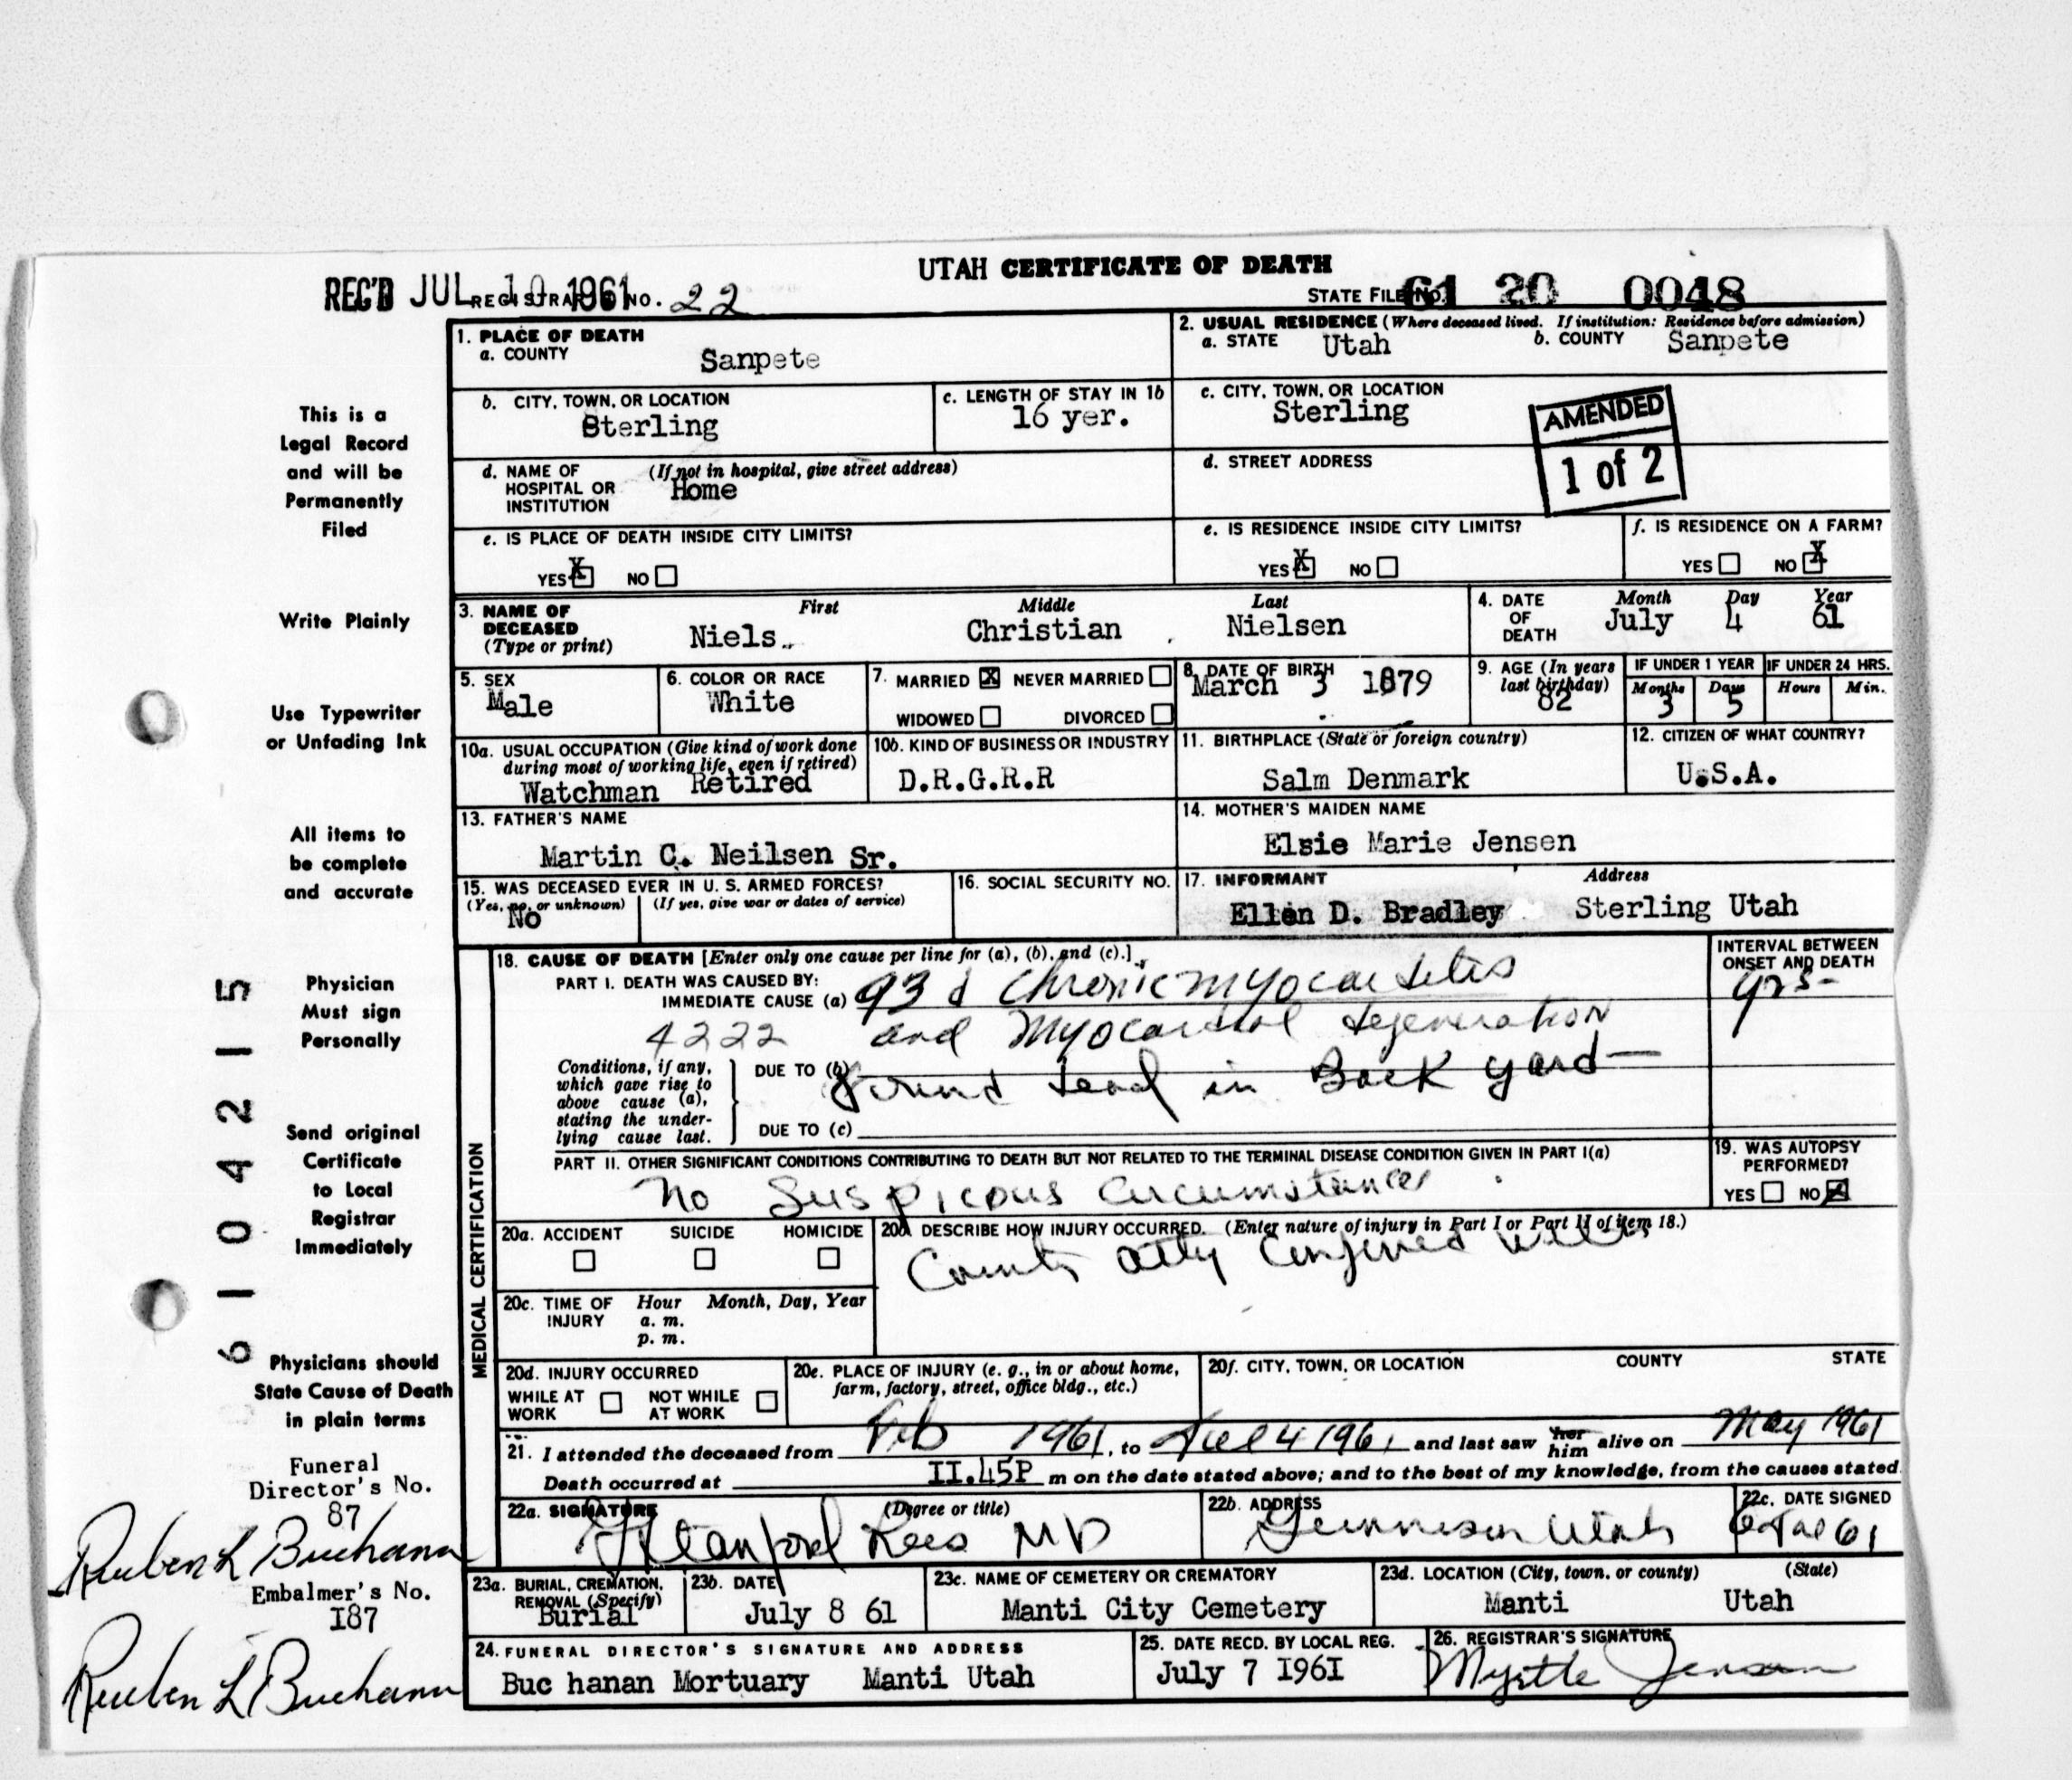 UTAH CERTIFICATE OF DEATH
REC'D JUL 10 1961 REGISTRAR'S NO. 22
STATE FILE NO. 61 20 0048
1. PLACE OF DEATH
a. COUNTY
Sanpete
2. USUAL RESIDENCE (Where deceased lived. If institution: Residence before admission)
a. STATE Utah b. COUNTY Sanpete
b. CITY, TOWN, OR LOCATION
Sterling
c. LENGTH OF STAY IN 1b
16 yer.
c. CITY, TOWN, OR LOCATION
Sterling
AMENDED
1 of 2
d. NAME OF HOSPITAL OR INSTITUTION (If not in hospital, give street address)
Home
d. STREET ADDRESS
e. IS PLACE OF DEATH INSIDE CITY LIMITS?
YES X NO
e. IS RESIDENCE INSIDE CITY LIMITS?
YES X NO
f. IS RESIDENCE ON A FARM?
YES NO X
3. NAME OF DECEASED (Type or print)
First Middle Last
Niels Christian Nielsen
4. DATE OF DEATH Month Day Year
July 4 61
5. SEX
Male
6. COLOR OR RACE
White
7. MARRIED X NEVER MARRIED
WIDOWED DIVORCED
8. DATE OF BIRTH
March 3 1879
9. AGE (In years last birthday)
82
IF UNDER 1 YEAR IF UNDER 24 HRS.
Months Days Hours Min.
3 5
10a. USUAL OCCUPATION (Give kind of work done during most of working life, even if retired)
Watchman Retired
10b. KIND OF BUSINESS OR INDUSTRY
D.R.G.R.R
11. BIRTHPLACE (State or foreign country)
Salm Denmark
12. CITIZEN OF WHAT COUNTRY?
U.S.A.
13. FATHER'S NAME
Martin C. Neilsen Sr.
14. MOTHER'S MAIDEN NAME
Elsie Marie Jensen
15. WAS DECEASED EVER IN U. S. ARMED FORCES?
(Yes, no, or unknown) (If yes, give war or dates of service)
No
16. SOCIAL SECURITY NO.
17. INFORMANT Address
Ellen D. Bradley Sterling Utah
18. CAUSE OF DEATH [Enter only one cause per line for (a), (b), and (c).]
PART I. DEATH WAS CAUSED BY:
IMMEDIATE CAUSE (a) 93 d Chronic myocarditis
4222 and Myocardial degeneration
Conditions, if any, which gave rise to above cause (a), stating the underlying cause last.
DUE TO (b) Found dead in Back yard—
DUE TO (c)
INTERVAL BETWEEN ONSET AND DEATH
yrs-
PART II. OTHER SIGNIFICANT CONDITIONS CONTRIBUTING TO DEATH BUT NOT RELATED TO THE TERMINAL DISEASE CONDITION GIVEN IN PART I(a)
No Suspicous Circumstances
19. WAS AUTOPSY PERFORMED?
YES NO X
20a. ACCIDENT SUICIDE HOMICIDE
DESCRIBE HOW INJURY OCCURRED. (Enter nature of injury in Part I or Part II of item 18.)
County Atty Confered with
20c. TIME OF INJURY Hour Month, Day, Year
a. m.
p. m.
20d. INJURY OCCURRED
WHILE AT WORK NOT WHILE AT WORK
20e. PLACE OF INJURY (e. g., in or about home, farm, factory, street, office bldg., etc.)
20f. CITY, TOWN, OR LOCATION COUNTY STATE
21. I attended the deceased from Feb 1961, to Jul 4 1961 and last saw her him alive on May 1961
Death occurred at II.45P m on the date stated above; and to the best of my knowledge, from the causes stated.
22a. SIGNATURE (Degree or title)
Stanford Rees MD
22b. ADDRESS
Gunnison Utah
22c. DATE SIGNED
61
23a. BURIAL, CREMATION, REMOVAL (Specify)
Burial
23b. DATE
July 8 61
23c. NAME OF CEMETERY OR CREMATORY
Manti City Cemetery
23d. LOCATION (City, town, or county) (State)
Manti Utah
24. FUNERAL DIRECTOR'S SIGNATURE AND ADDRESS
Buc hanan Mortuary Manti Utah
25. DATE RECD. BY LOCAL REG.
July 7 I96I
26. REGISTRAR'S SIGNATURE
Myrtle Jensen
MEDICAL CERTIFICATION
This is a
Legal Record
and will be
Permanently
Filed
Write Plainly
Use Typewriter
or Unfading Ink
All items to
be complete
and accurate
Physician
Must sign
Personally
Send original
Certificate
to Local
Registrar
Immediately
Physicians should
State Cause of Death
in plain terms
Funeral
Director's No.
87
Reuben L Buchanan
Embalmer's No.
I87
Reuben L Buchanan
61042115